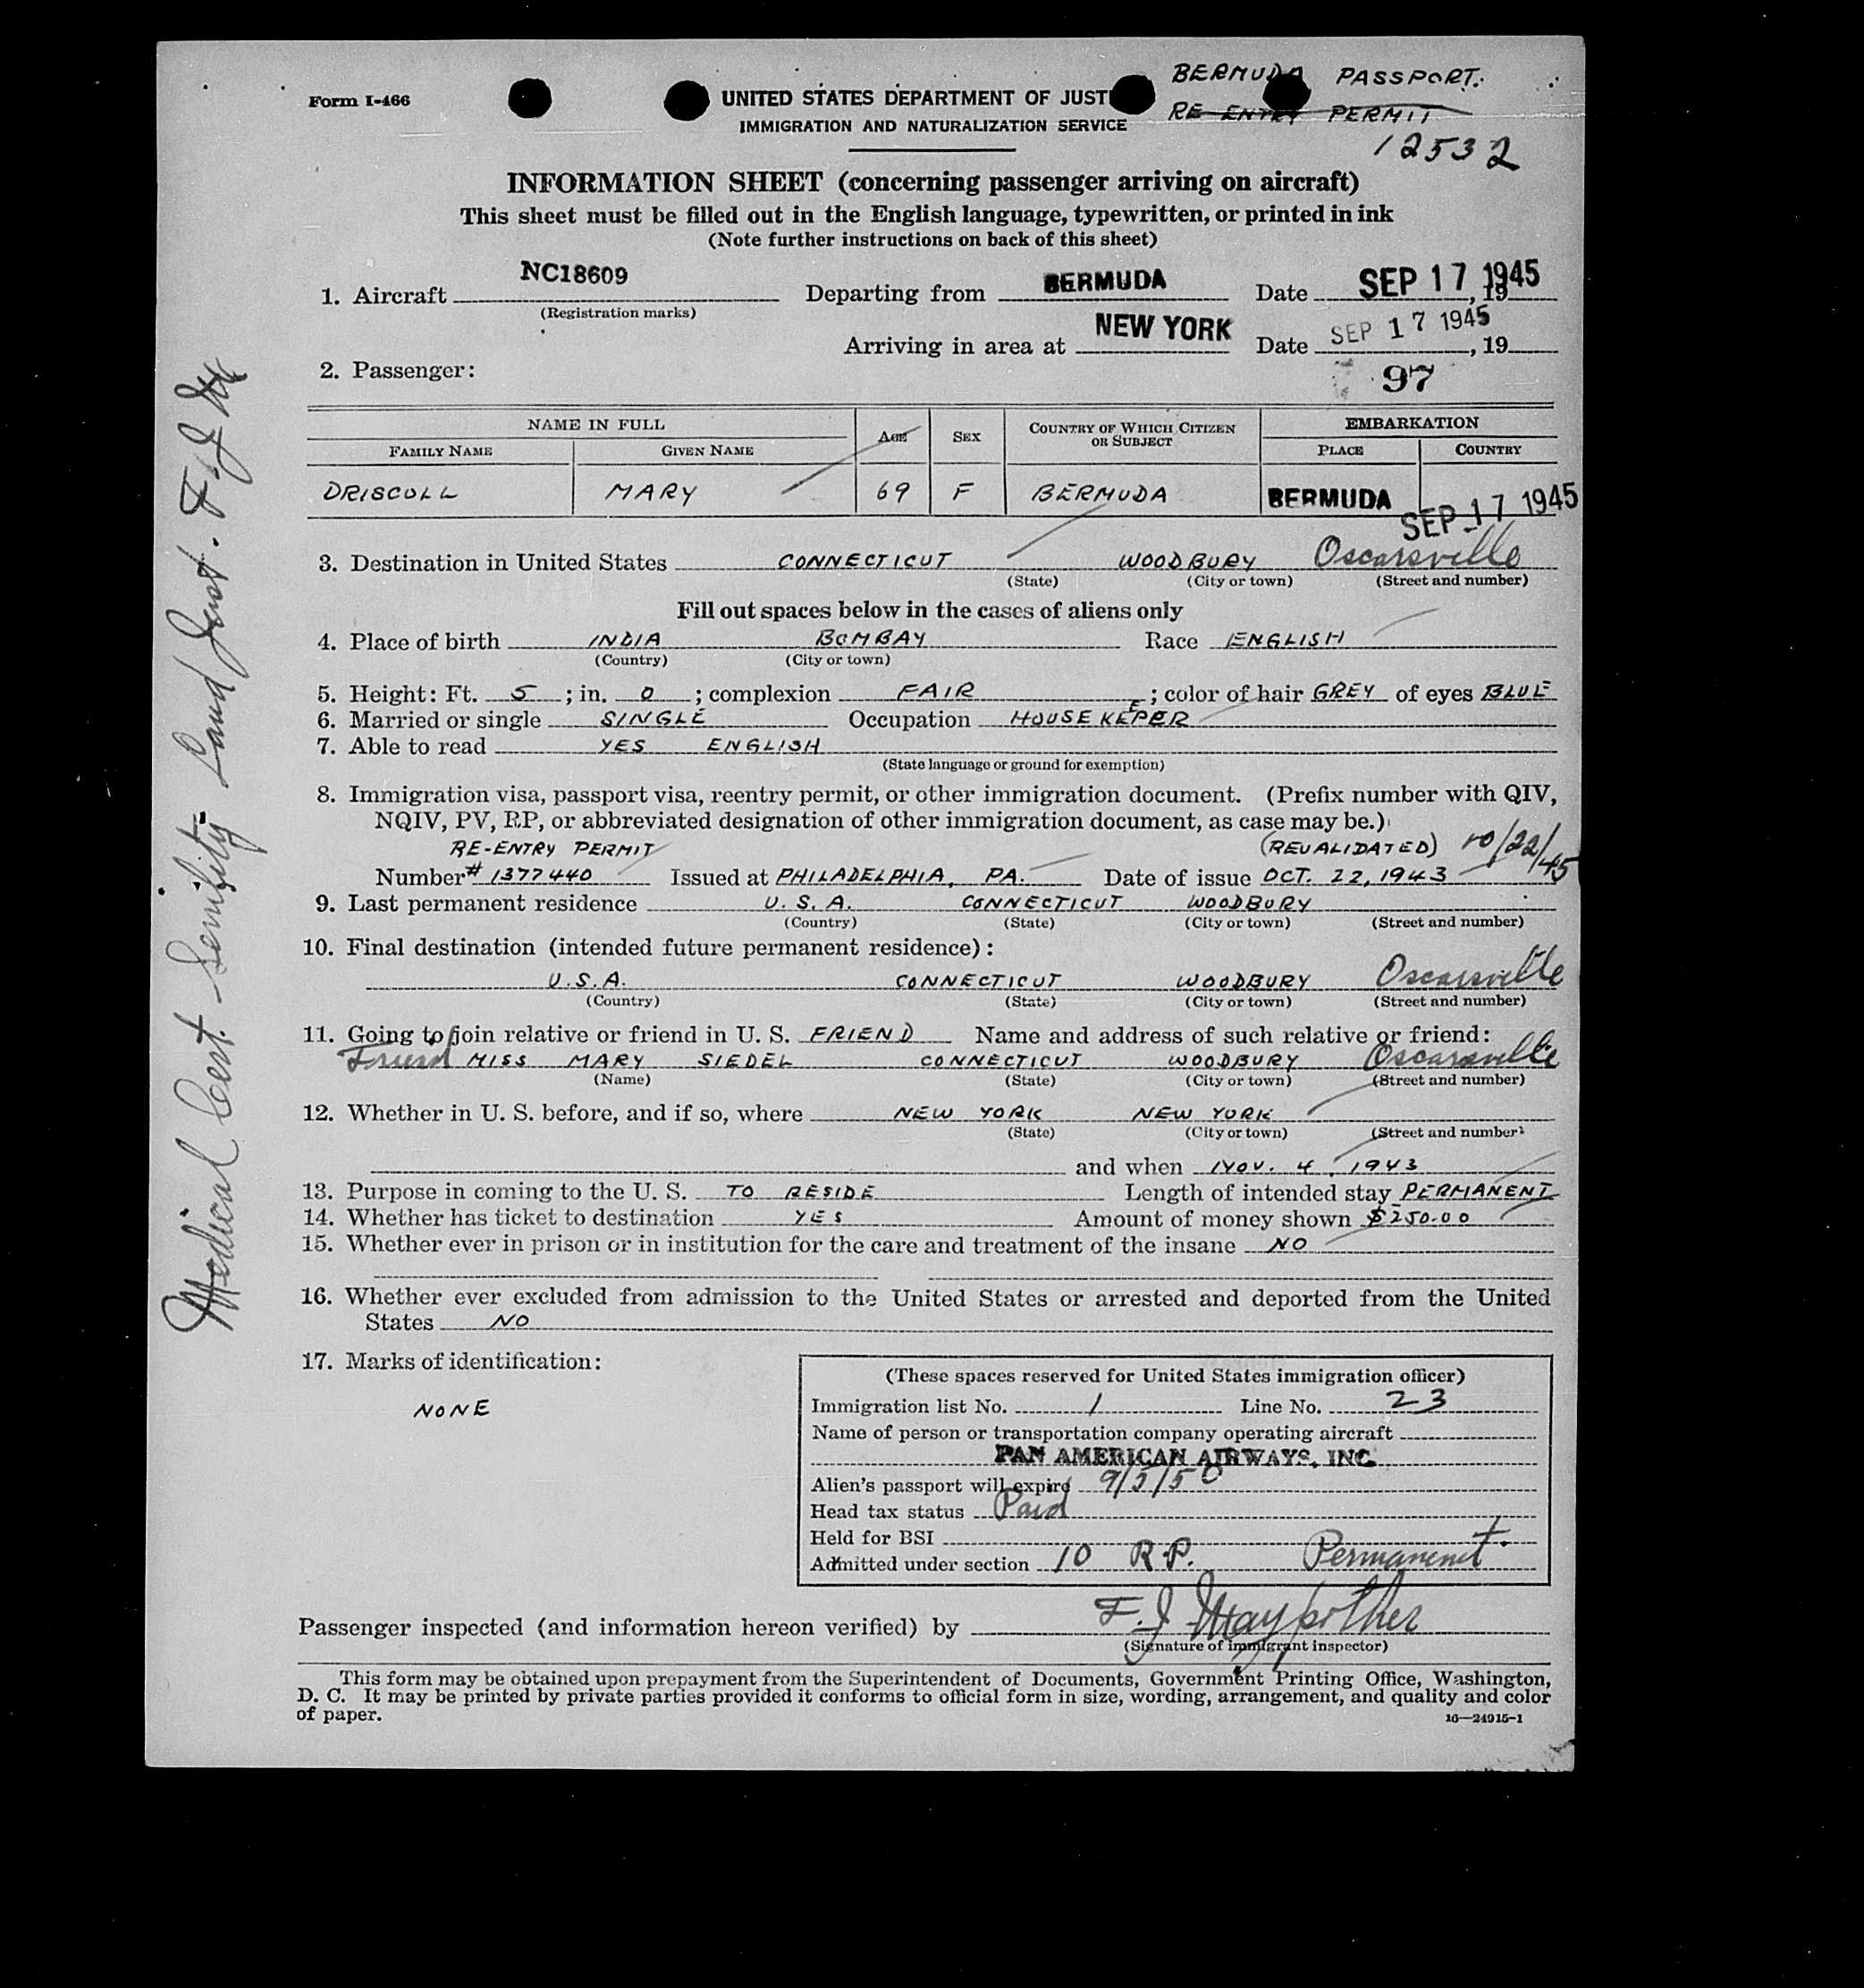 Form I-466
UNITED STATES DEPARTMENT OF JUST
IMMIGRATION AND NATURALIZATION SERVICE
BERMUDA PASSPORT.
RE-ENTRY PERMIT
12532
INFORMATION SHEET (concerning passenger arriving on aircraft)
This sheet must be filled out in the English language, typewritten, or printed in ink
(Note further instructions on back of this sheet)
1. Aircraft NC18609 Departing from BERMUDA Date SEP 17 1945, 19
(Registration marks)
Arriving in area at NEW YORK Date SEP 17 1945, 19
2. Passenger: 97
NAME IN FULL AGE SEX COUNTRY OF WHICH CITIZEN OR SUBJECT EMBARKATION
FAMILY NAME GIVEN NAME PLACE COUNTRY
DRISCOLL MARY 69 F BERMUDA BERMUDA SEP 17 1945
3. Destination in United States CONNECTICUT WOODBURY Oscarsville
(State) (City or town) (Street and number)
Fill out spaces below in the cases of aliens only
4. Place of birth INDIA BOMBAY Race ENGLISH
(Country) (City or town)
5. Height: Ft. 5 ; in. 0 ; complexion FAIR ; color of hair GREY of eyes BLUE
6. Married or single SINGLE Occupation HOUSEKEEPER
7. Able to read YES ENGLISH
(State language or ground for exemption)
8. Immigration visa, passport visa, reentry permit, or other immigration document. (Prefix number with QIV,
NQIV, PV, RP, or abbreviated designation of other immigration document, as case may be.)
RE-ENTRY PERMIT (REVALIDATED) 10/22/45
Number # 1377440 Issued at PHILADELPHIA, PA. Date of issue OCT. 22, 1943
9. Last permanent residence U.S.A. CONNECTICUT WOODBURY
(Country) (State) (City or town) (Street and number)
10. Final destination (intended future permanent residence):
U.S.A. CONNECTICUT WOODBURY Oscarsville
(Country) (State) (City or town) (Street and number)
11. Going to join relative or friend in U. S. FRIEND Name and address of such relative or friend:
Friend MISS MARY SIEDEL CONNECTICUT WOODBURY Oscarsville
(Name) (State) (City or town) (Street and number)
12. Whether in U. S. before, and if so, where NEW YORK NEW YORK
(State) (City or town) (Street and number)
and when NOV. 4, 1943
13. Purpose in coming to the U. S. TO RESIDE Length of intended stay PERMANENT
14. Whether has ticket to destination YES Amount of money shown $250.00
15. Whether ever in prison or in institution for the care and treatment of the insane NO
16. Whether ever excluded from admission to the United States or arrested and deported from the United
States NO
17. Marks of identification:
NONE
(These spaces reserved for United States immigration officer)
Immigration list No. 1 Line No. 23
Name of person or transportation company operating aircraft
PAN AMERICAN AIRWAYS, INC.
Alien's passport will expire 9/5/50
Head tax status Paid
Held for BSI
Admitted under section 10 R.P. Permanent.
Passenger inspected (and information hereon verified) by F. J. Maypother
(Signature of immigrant inspector)
This form may be obtained upon prepayment from the Superintendent of Documents, Government Printing Office, Washington,
D. C. It may be printed by private parties provided it conforms to official form in size, wording, arrangement, and quality and color
of paper.
16—24915-1
Medical Cert. - Senility - Land Inst. F.J.M